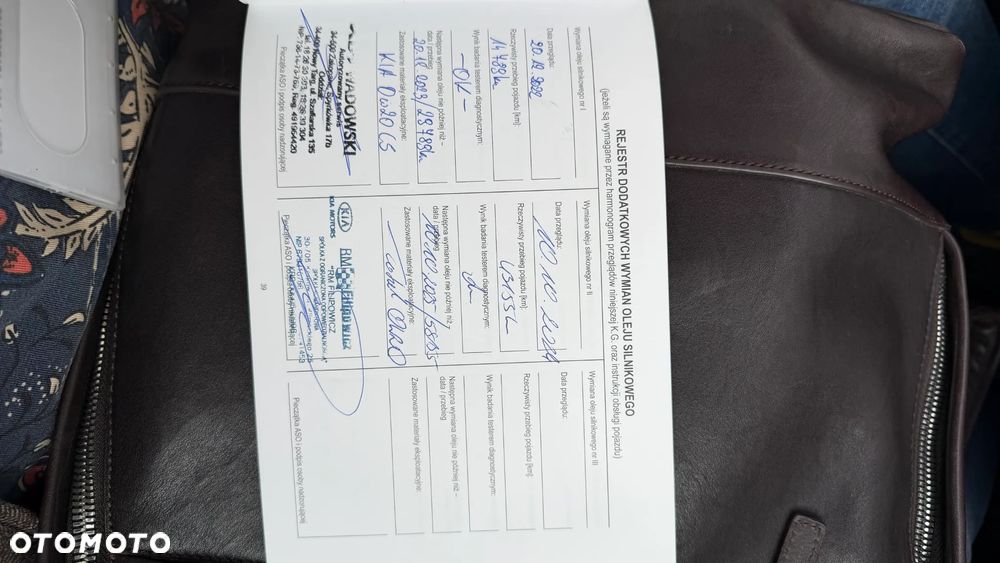 REJESTR DODATKOWYCH WYMIAN OLEJU SILNIKOWEGO
(jeżeli są wymagane przez harmonogram przeglądów niniejszej K.G. oraz instrukcji obsługi pojazdu)
Wymiana oleju silnikowego nr I
Data przeglądu:
20.12.2022
Rzeczywisty przebieg pojazdu [km]:
14 788
Wynik badania testerem diagnostycznym:
- OK -
Następna wymiana oleju nie później niż –
data / przebieg
20.12.2023/28 788
Zastosowane materiały eksploatacyjne:
KIA 0W20 C5
WADOWSKI
Autoryzowany serwis
34-500 Zakopane, Spyrkówka 17b
Oddział
34-400 Nowy Targ, ul. Szaflarska 135
Pieczątka ASO i podpis osoby nadzorującej
Wymiana oleju silnikowego nr II
Data przeglądu:
10.10.2024
Rzeczywisty przebieg pojazdu [km]:
Wynik badania testerem diagnostycznym:
Następna wymiana oleju nie później niż –
data / przebieg
10.10.2025
Zastosowane materiały eksploatacyjne:
KIA
KIA MOTORS
RM Filipowicz
"RM FILIPOWICZ
Pieczątka ASO i podpis osoby nadzorującej
Wymiana oleju silnikowego nr III
Data przeglądu:
Rzeczywisty przebieg pojazdu [km]:
Wynik badania testerem diagnostycznym:
Następna wymiana oleju nie później niż –
data / przebieg
Zastosowane materiały eksploatacyjne:
Pieczątka ASO i podpis osoby nadzorującej
39
OTOMOTO